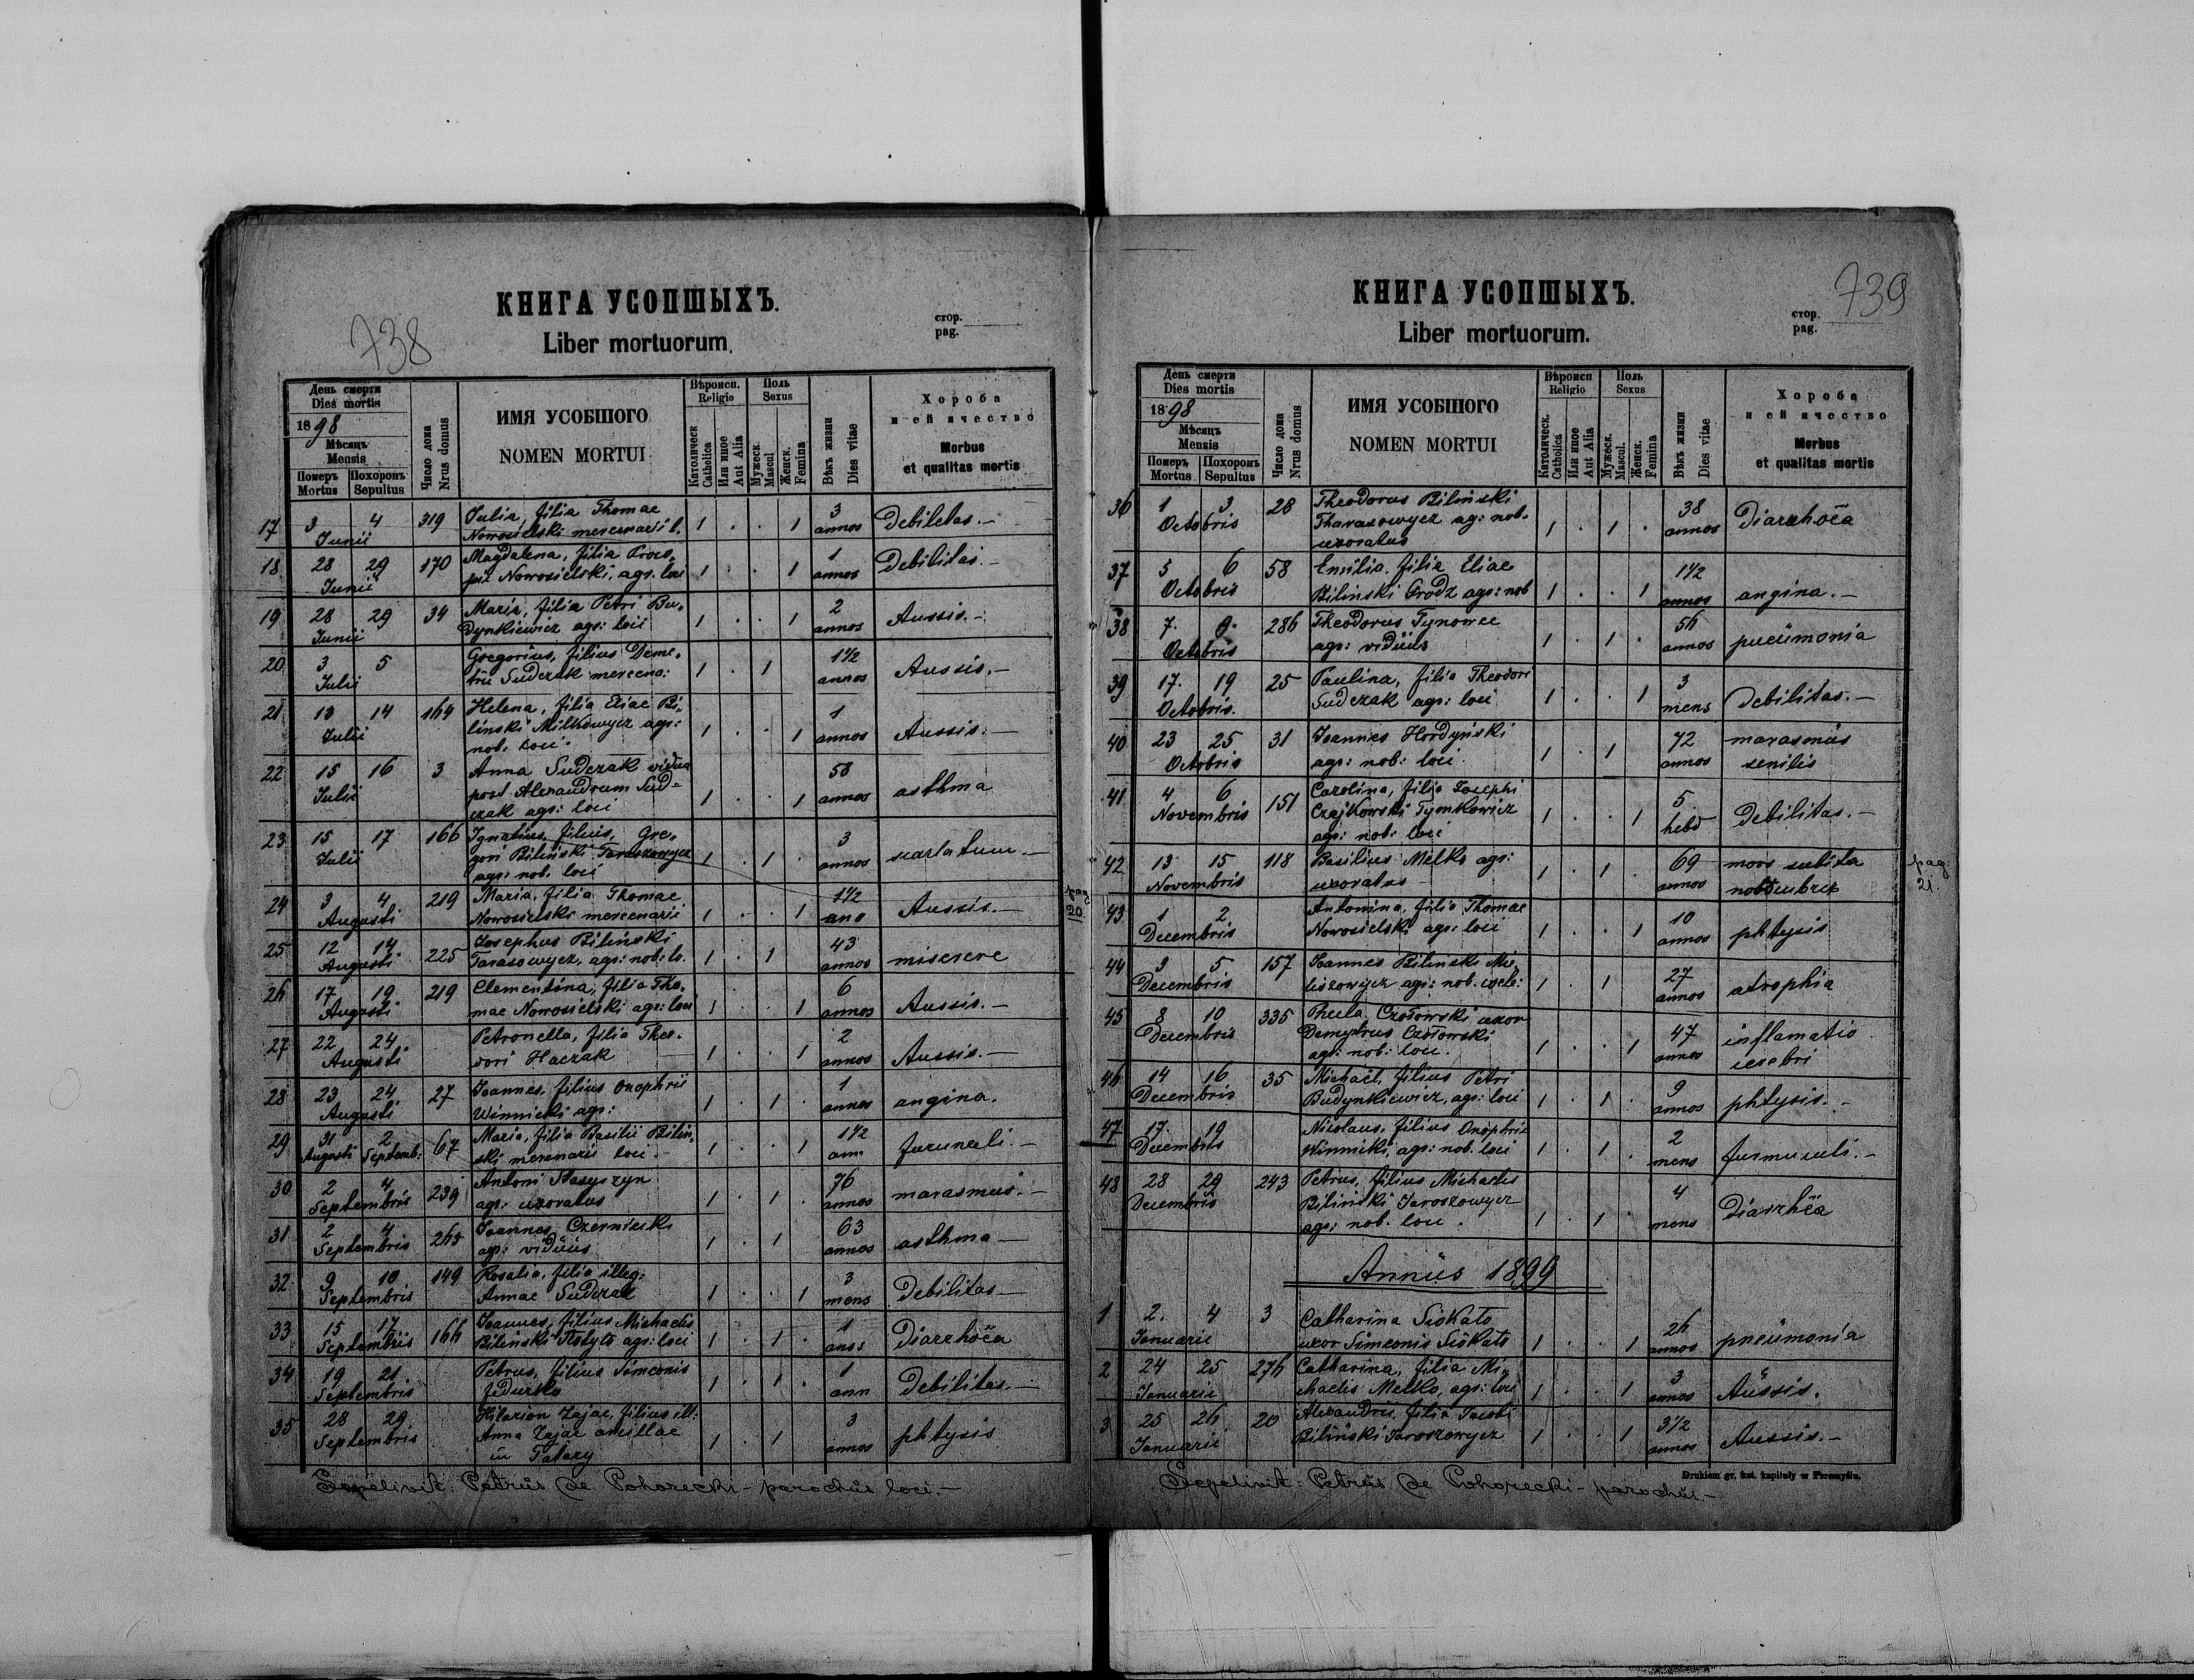 КНИГА УСОПШЫХЪ.
738
Liber mortuorum.
стор.
pag.
День смерти
Dies mortis
1898
Мѣсяцъ
Mensis
Померъ
Mortus
Похоронъ
Sepultus
Число дома
Nrus domus
ИМЯ УСОБШОГО
NOMEN MORTUI
Вѣроисп.
Religio
Католическ
Catholica
Или иное
Aut Alia
Полъ
Sexus
Мужеск.
Mascul
Женск.
Femina
Вѣкъ жизни
Dies vitae
Хороба
и ей ячество
Morbus
et qualitas mortis
17 3 4 Junii 319 Julia, filia Thomae
Nowosielski mercenarii l. 1 . . 1 3 annos Debiletas.-
18 28 29 Junii 170 Magdalena, filia Proco-
pii Nowosielski, agr. loci 1 . . 1 1 annos Debilitas.-
19 28 29 Junii 34 Maria, filia Petri Bu-
dynkiewicz agr: loci 1 . . 1 2 annos Tussis.-
20 3 5 Julii Gregorius, filius Deme-
trii Sudczak mercena: 1 . 1 1 1/2 annos Tussis.-
21 13 14 Julii 164 Helena, filia Eliae Bi-
linski Milkowycz agr:
nob. loci. 1 . . 1 1 annos Tussis.-
22 15 16 Julii 3 Anna Sudczak vidua
post Alexandrum Sud=
czak agr: loci 1 . . 1 58 annos asthma
23 15 17 Julii 166 Ignatius, filius, Gre-
gori Biliński Taraszowycz
agr: nob. loci 1 . 1 . 3 annos
24 3 4 Augusti 219 Maria, filia Thomae
Nowosielski mercenarii 1 . . 1 1 1/2 ano Tussis.-
pag
20.
25 12 14 Augusti 225 Josephus Biliński
Tarasowycz, agr: nob: lo. 1 . 1 43 annos miserere
26 17 19 Augusti 219 Clementina, filia Tho-
mae Nowosielski agr: loci 1 . . 1 6 annos Tussis.-
27 22 24 Augusti Petronella, filia Theo-
dori Haczak 1 . . 1 2 annos Tussis.-
28 23 24 Augusti 27 Joannes, filius Onophrii
Winnicki agr: 1 . 1 . 1 annos angina.
29 31 Augusti 2 Septemb: 67 Maria, filia Basilii Bilin-
ski mercenarii loci. 1 . . 1 1 1/2 ann furunculi.-
30 2 4 Septembris 239 Antoni
agr: uxoratus 1 . 1 . 76 annos marasmus.-
31 2 4 Septembris 265 Joannes Czerniecki
agr: viduus 1 . 1 63 annos asthma-
32 9 10 Septembris 149 Rosalia, filia illeg:
Annae Sudczak 1 . . 1 3 mens Debilitas-
33 15 17 Septembris 166 Joannes, filius Michaelis
Biliński agr: loci 1 . 1 . 1 Diarrhöea
34 19 21 Septembris Petrus, filius Simeonis
Fedurko 1 . 1 . 1 ann Debilitas.-
35 28 29 Septembris Hilarion Zajac, filius ill:
Anna Zajac ancillae
in Tatary 1 . 1 3 annos phtysis
Sepelivit: Petrus de Pohorecki - parochus loci.-
КНИГА УСОПШЫХЪ.
739
Liber mortuorum.
стор.
pag.
День смерти
Dies mortis
1898
Мѣсяцъ
Mensis
Померъ
Mortus
Похоронъ
Sepultus
Число дома
Nrus domus
ИМЯ УСОБШОГО
NOMEN MORTUI
Вѣроисп
Religio
Католическ.
Catholica
Или иное
Aut Alia
Полъ
Sexus
Мужеск.
Mascul.
Женск.
Femina
Вѣкъ жизни
Dies vitae
Хороба
и ей ячество
Morbus
et qualitas mortis
36 1 3 Octobris 28 Theodorus Biliński
Tharasowycz agr: nob.
uxoratus 1 . 1 . 38 annos Diarrhöea
37 5 6 Octobris 58 Emilia, filia Eliae
Bilinski Grodz agr: nob 1 . . 1 1 1/2 annos angina.-
38 7. 9. Octobris 286 Theodorus Tynowec
agr: viduus 1 . 1 . 56 annos pneumonia
39 17. 19 Octobris. 25 Paulina, filia Theodori
Sudczak agr: loci 1 . . 1 3 mens Debilitas.-
40 23 25 Octobris 31 Joannes Hordyński
agr: nob: loci. 1 . 1 72 annos marasmus
senilis
41 4 6 Novembris 151 Carolina, filia Josephi
Czajkowski Tymkowicz
agr: nob: loci 1 . . 1 5. hebd Debilitas.-
42 13 15 Novembris 118 Basilius Melko agr:
uxoratus - 1 . 1 . 69 annos mors subita
pag.
21.
43 1 2 Decembris Antonina, filia Thomae
Nowosielski agr: loci 1 . . 1 10 annos phtysis
44 3 5 Decembris 157 Joannes Bilinski
agr: nob. 1 . 1 27 annos atrophia
45 8 10 Decembris 335 Czołowski uxor
Demytrus Czołowski
agr: nob: loci. 1 . . 1 47 annos inflamatio
46 14 16 Decembris 35 Michaël, filius Petri
Budynkiewicz, agr: loci 1 . 1 . 9 annos phtysis.-
47 17 19 Decembris Nicolaus, filius Onophrii
Winnicki, agr: nob. loci 1 . 1 . 2 mens
48 28 29 Decembris 243 Petrus, filius Michaelis
Biliński Jaroszowycz
agr: nob. loci. 1 . 1 4 mens Diarrhëa
Annus 1899
1 2. 4 Januarii 3 Catharina Siokato
uxor Simeonis Siokato 1 . . 1 26 annos pneumonia
2 24 25 Januarii 276 Catharina, filia Mi-
chaelis Melko, agr: loci 1 . . 1 3 annos Tussis.
3 25 26 Januarii 20 Alexandris, filia Jacobi
Biliński Jaroszowycz 1 . . 1 3 1/2 annos Tussis.-
Drukiem gr. kat. kapituły w Przemyślu.
Sepelivit: Petrus de Pohorecki - parochus.-